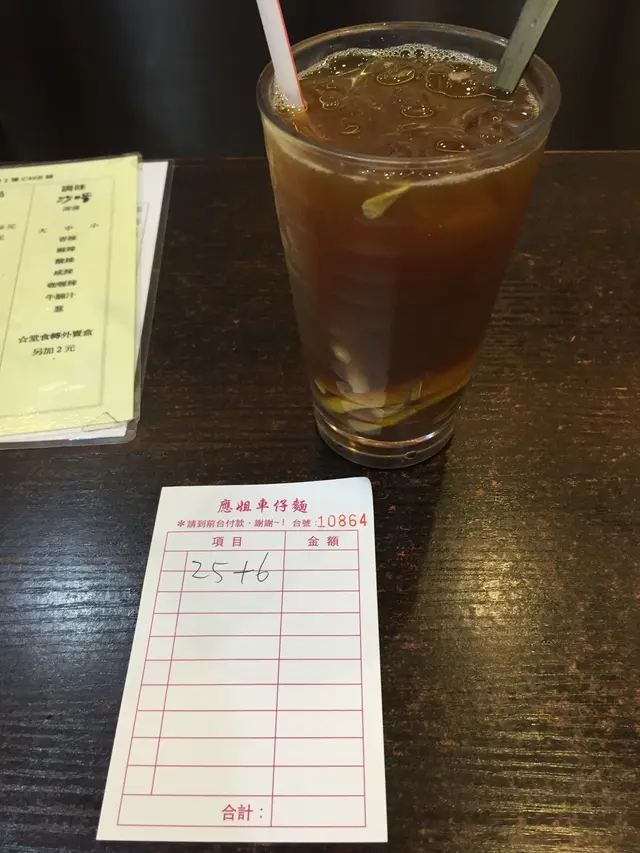 調味
大 中 小
香辣
麻辣
酸辣
咸辣
咖喱辣
牛腩汁
蔥
☆堂食轉外賣盒
另加2元
應姐車仔麵
*請到前台付款,謝謝~! 台號:10864
項目 金額
25+6
合計: